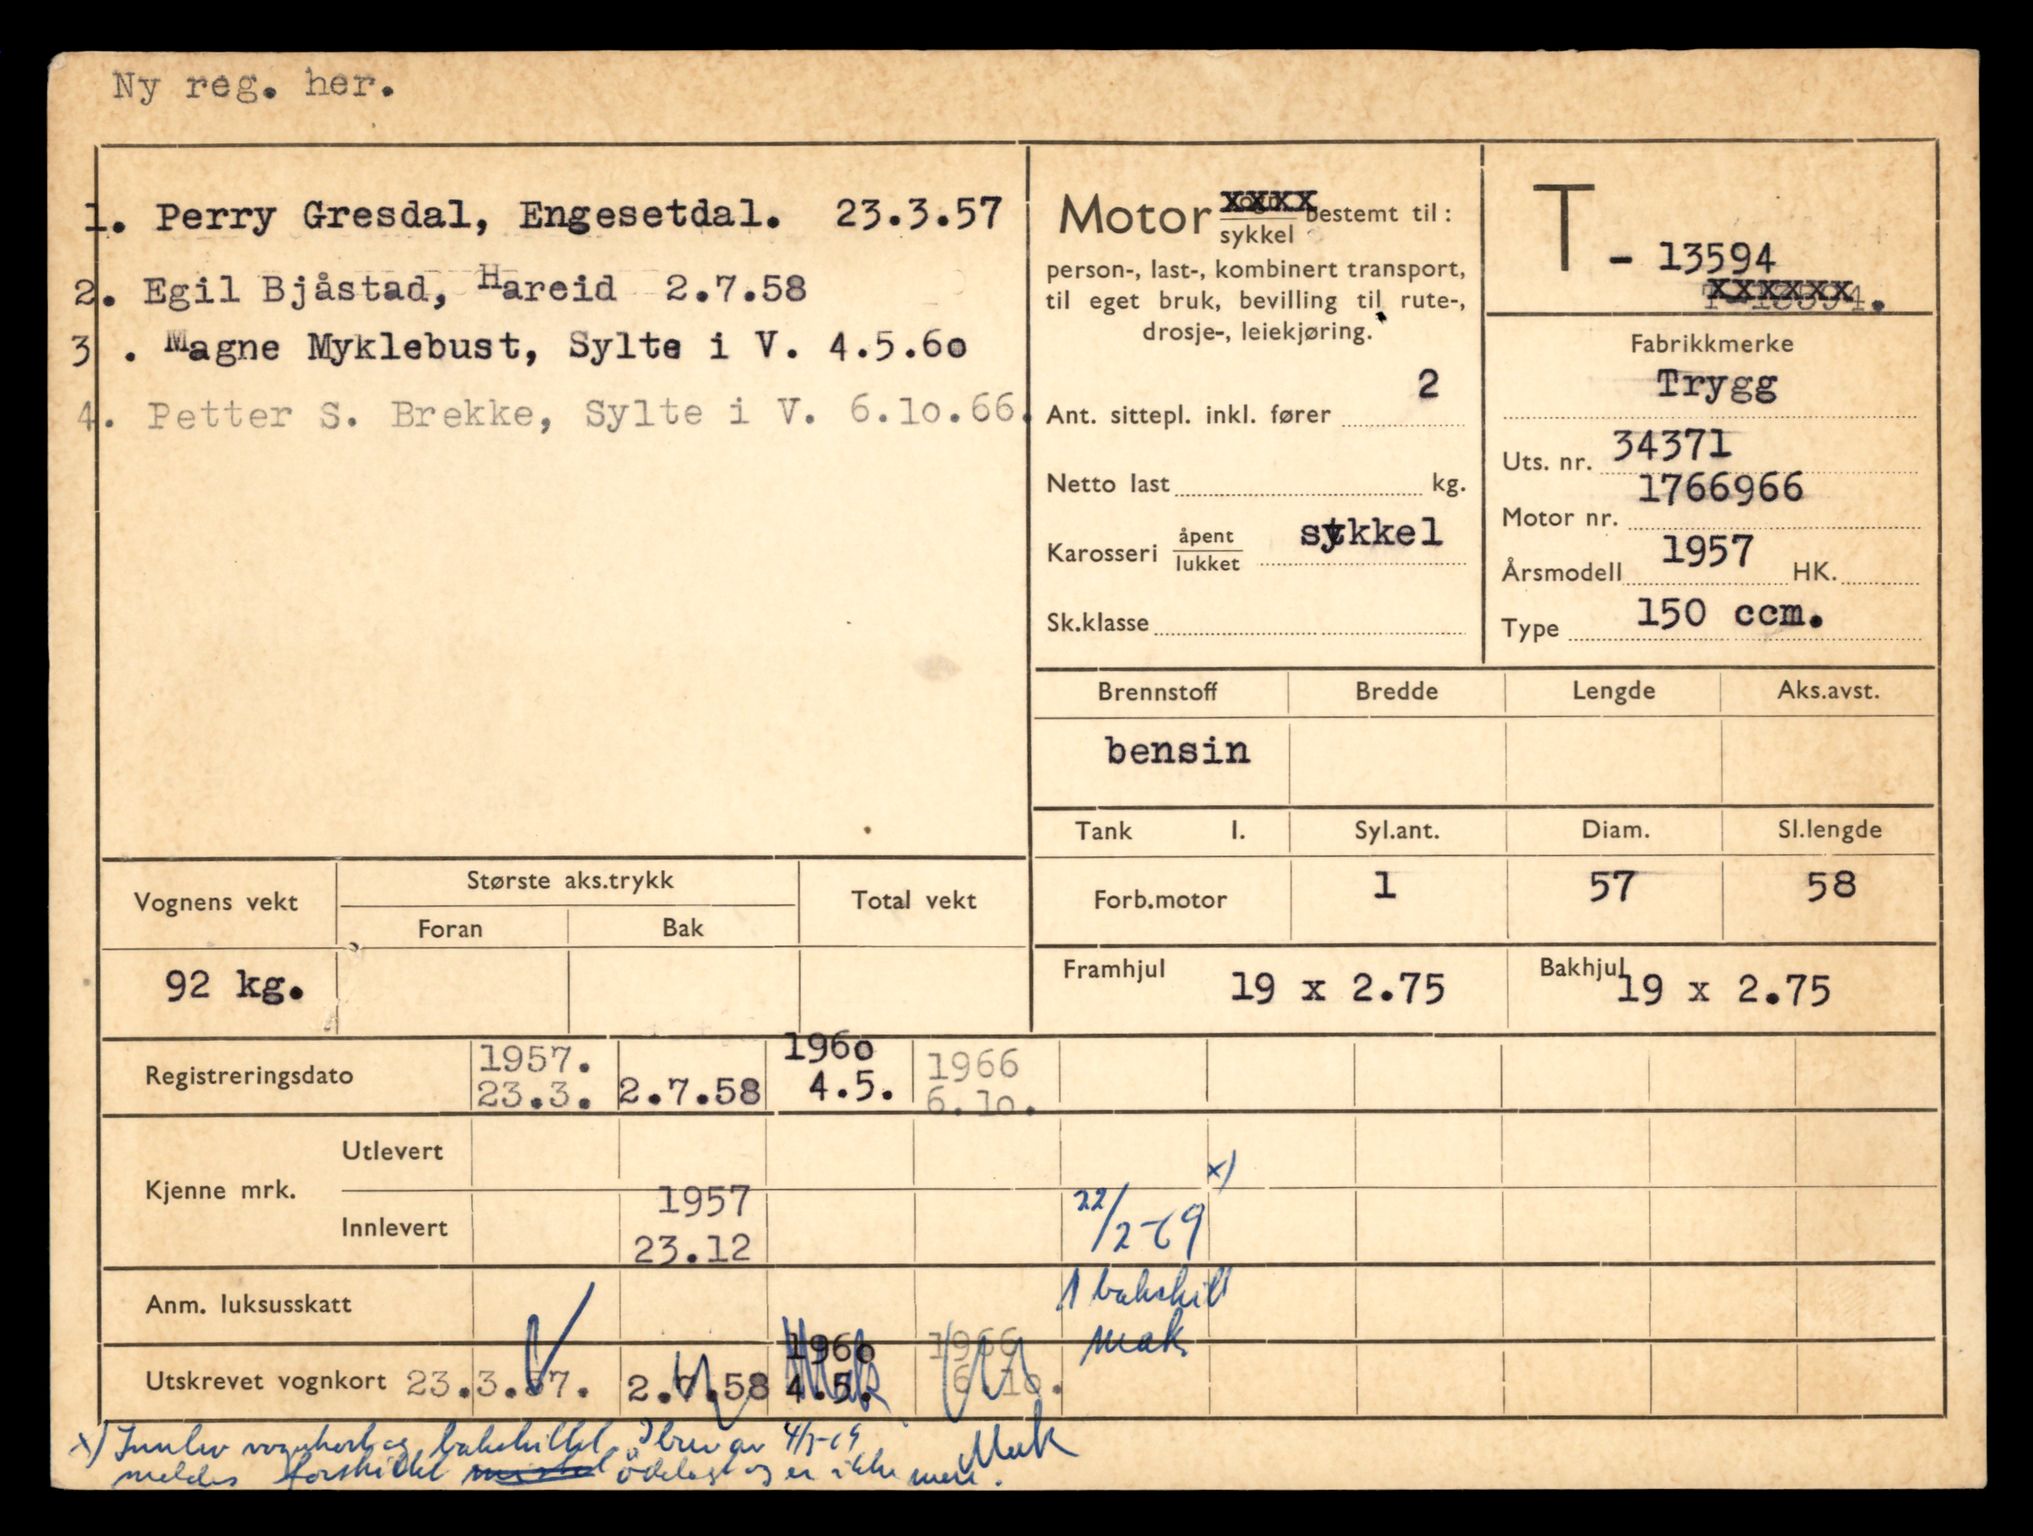 Ny reg. her.
1. Perry Gresdal, Engesetdal. 23.3.57
2. Egil Bjåstad, Hareid 2.7.58
3 . Magne Myklebust, Sylte i V. 4.5.60
4. Petter S. Brekke, Sylte i V. 6.10.66.
Motor xxxx sykkel bestemt til:
person-, last-, kombinert transport,
til eget bruk, bevilling til rute-,
drosje-, leiekjøring.
Ant. sittepl. inkl. fører 2
Netto last kg.
Karosseri åpent lukket sykkel
Sk.klasse
T - 13594
xxxxxx.
Fabrikkmerke
Trygg
Uts. nr. 34371
Motor nr. 1766966
Årsmodell 1957 HK.
Type 150 ccm.
Brennstoff Bredde Lengde Aks.avst.
bensin
Tank l. Syl.ant. Diam. Sl.lengde
Forb.motor 1 57 58
Framhjul 19 x 2.75 Bakhjul 19 x 2.75
Vognens vekt Største aks.trykk Total vekt
Foran Bak
92 kg.
Registreringsdato 1957. 23.3. 2.7.58 1960 4.5. 1966 6.10.
Kjenne mrk. Utlevert x)
Innlevert 1957 23.12 22/2-69
Anm. luksusskatt 1 bakskilt
Mak.
Utskrevet vognkort 23.3.57. 2.7.58 1960 4.5. 1966 6.10.
x) Innlev vognkort og bakskiltet. I brev av
meldes forskiltet ødelagt og er ikke mere. Mak